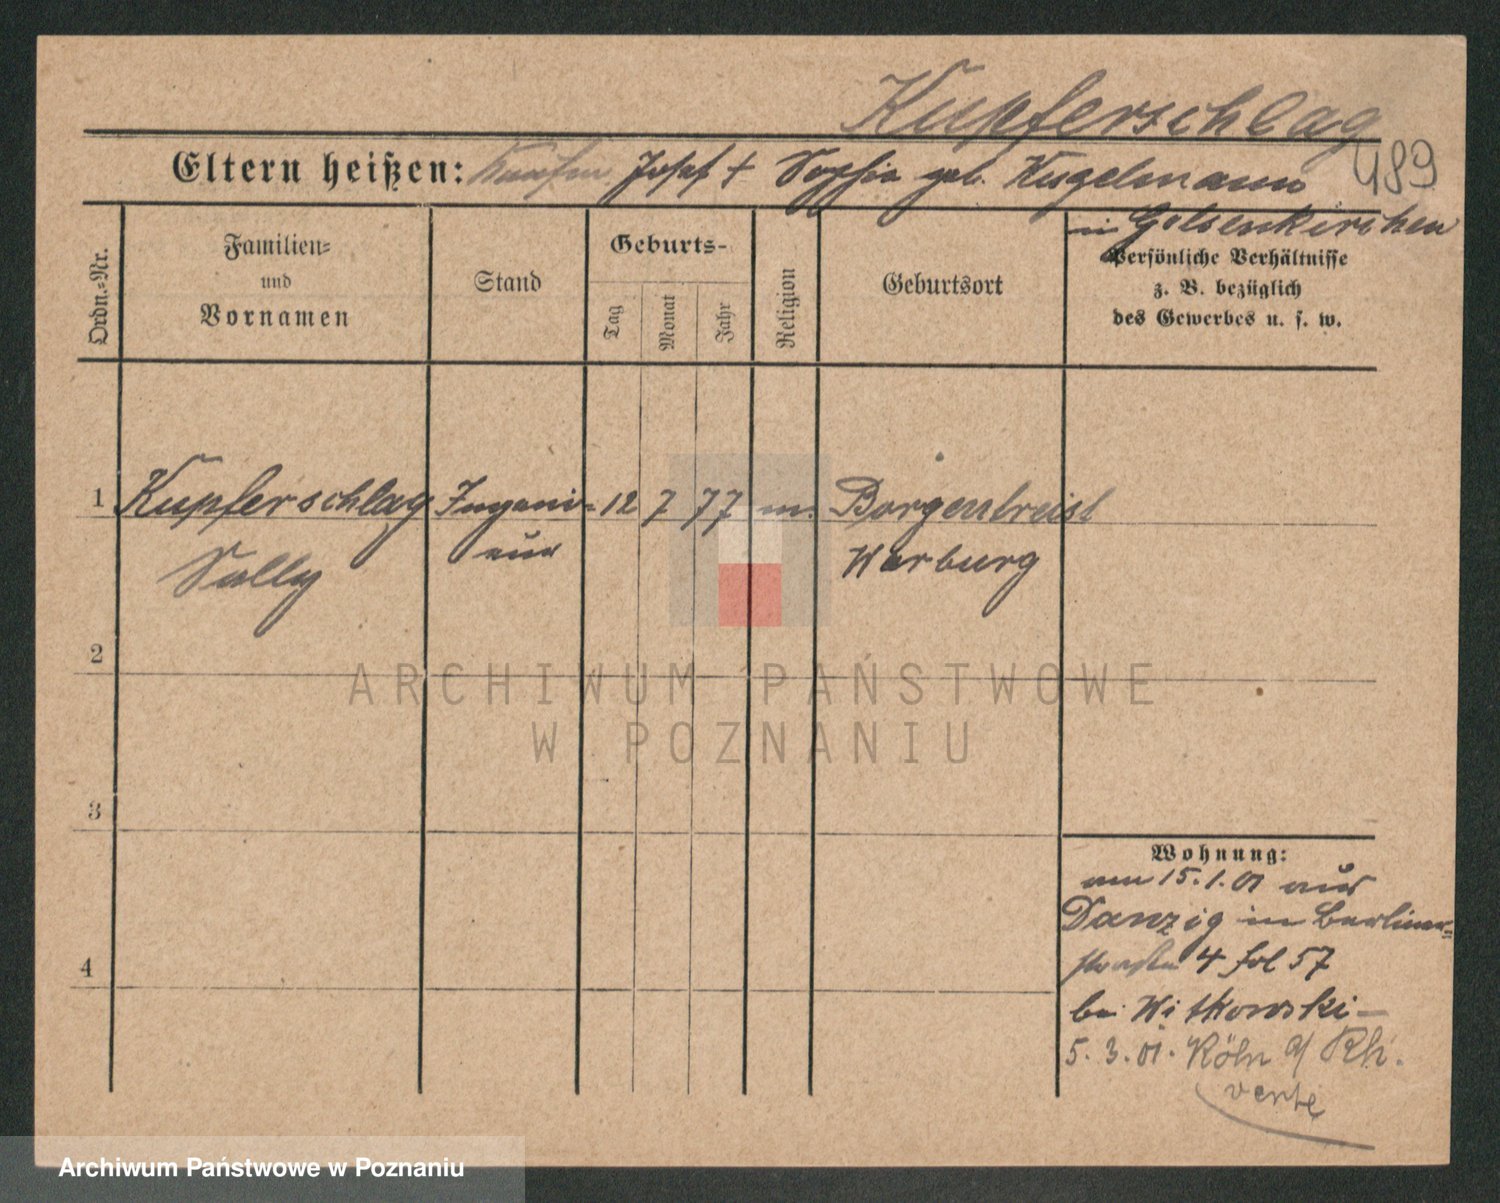 Kupferschlag
489
Eltern heißen: Kaufm. Josef † Sophie geb. Kugelmann
in Gelsenkirchen
Ordn.-Nr.
Familien-
und
Vornamen
Stand
Geburts-
Tag
Monat
Jahr
Religion
Geburtsort
Persönliche Verhältnisse
z. B. bezüglich
des Gewerbes u. s. w.
1 Kupferschlag Ingeni- 12 7 77 m. Borgentreich
Sally eur Warburg
2
ARCHIWUM PAŃSTWOWE
W POZNANIU
3
4
Wohnung:
am 15.1.01 aus
Danzig in Berliner-
straße 4 fol 57
bei Witkowski –
5.3.01. Köln a/Rh.
verte
Archiwum Państwowe w Poznaniu